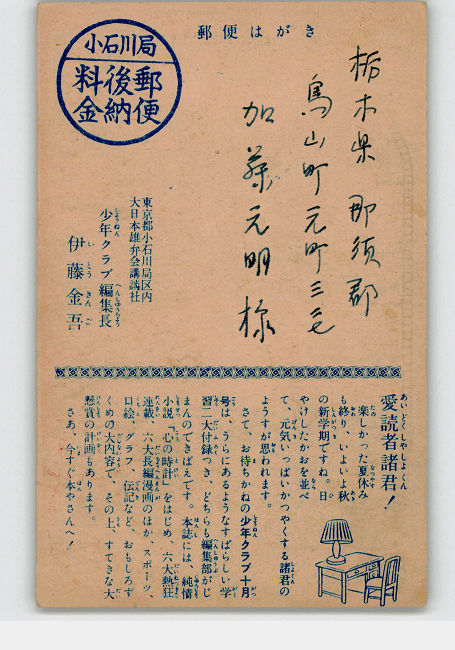 郵便はがき
小石川局
料後郵
金納便
栃木県 那須郡
烏山町元町三三
加藤元明様
東京都小石川局区内
大日本雄弁会講談社
少年クラブ編集長
伊藤金吾
愛読者諸君!
楽しかった夏休み
も終り、いよいよ秋
の新学期ですね。日
やけしたかおを並べ
て、元気いっぱいかつやくする諸君の
ようすが思われます。
さて、お待ちかねの少年クラブ十月
号は、うらにあるようなすばらしい学
習二大付録つき、どちらも編集部がじ
まんのできばえです。本誌には、純情
小説『心の時計』をはじめ、六大熱狂
連載、六大長編漫画のほか、スポーツ、
口絵、グラフ、伝記など、おもしろず
くめの大内容で、その上、すてきな大
懸賞の計画もあります。
さあ、今すぐ本やさんへ!